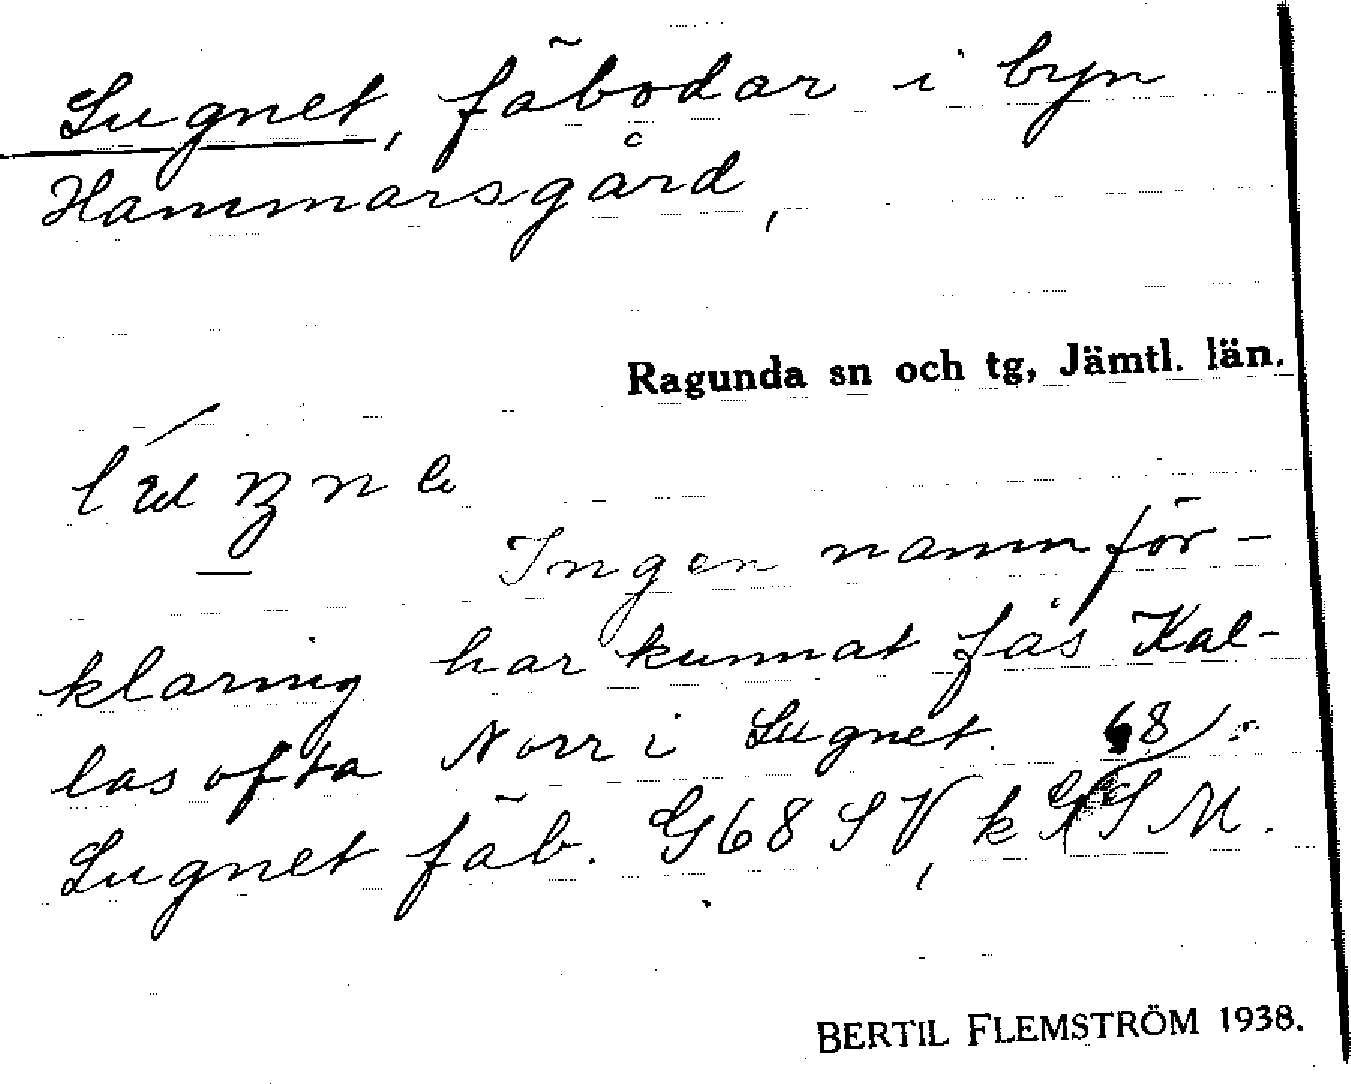 Lugnet, fäbodar i byn
Hammarsgård,
Ragunda sn och tg, Jämtl. län.
Ingen namnför-
klaring har kunnat fås Kal-
las ofta Norr i Lugnet. 68
Lugnet fäb. G68SV, k G S M.
BERTIL FLEMSTRÖM 1938.